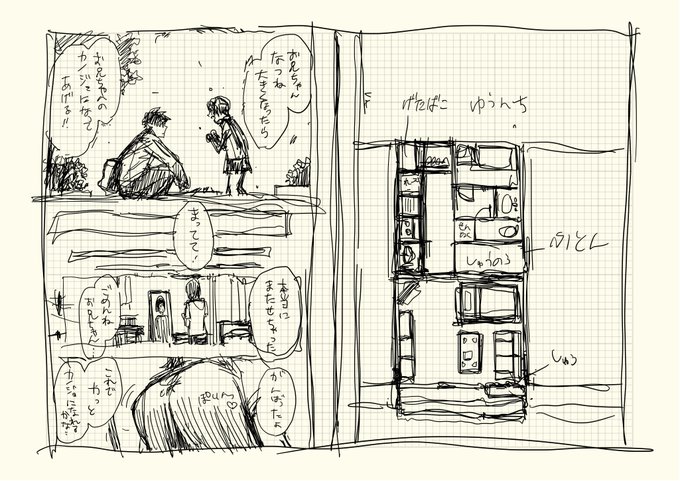 お兄ちゃん
なつね
大きくなったら
お兄ちゃんの
カノジョになって
あげる!!
まってて!
本当に
またせちゃった
ごめんね
お兄ちゃん
がんばったよ
これで
やっと
カノジョになれる
かな?
ぽいん♡
げたばこ
ゆうんち
せんめん
しゅうのう
ふとん
しゅう